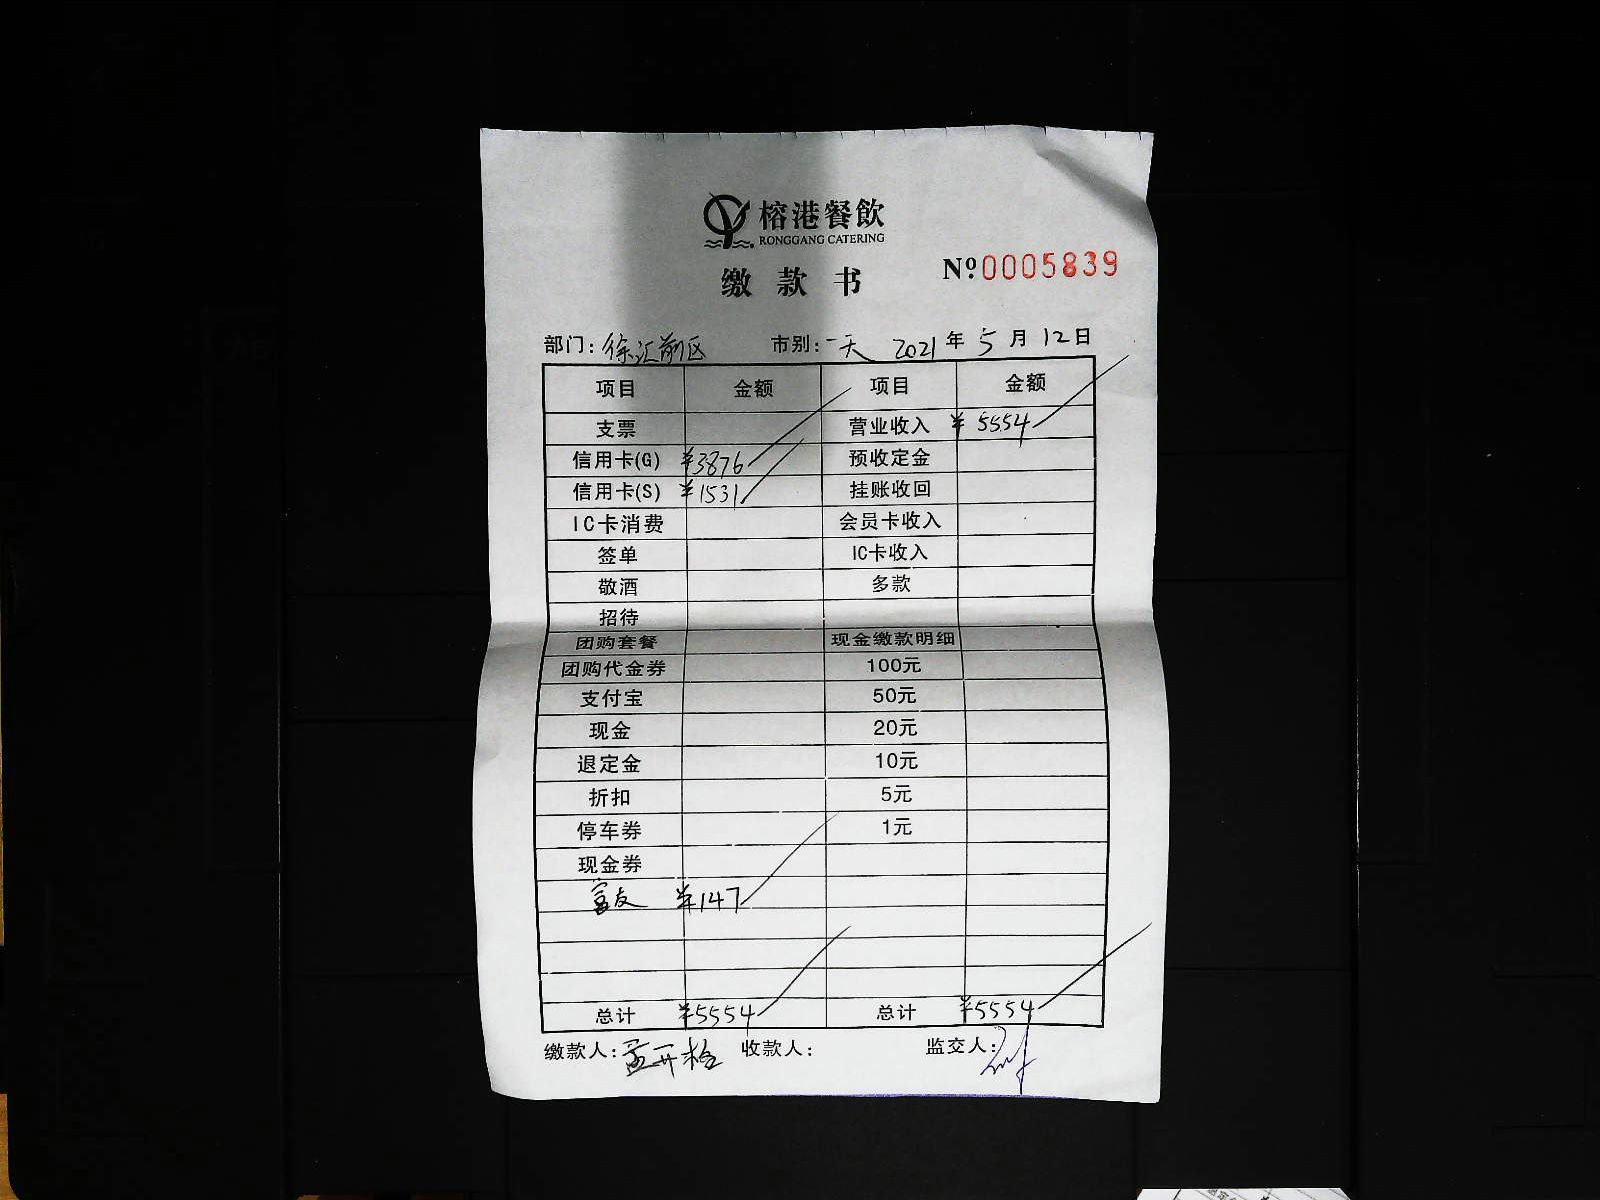 榕港餐飲
RONGGANG CATERING
缴款书
Nº0005839
部门：徐汇前区 市别：一天 2021年5月12日
项目 金额 项目 金额
支票 营业收入 ¥5554
信用卡(G) ¥3876 预收定金
信用卡(S) ¥1531 挂账收回
IC卡消费 会员卡收入
签单 IC卡收入
敬酒 多款
招待
团购套餐 现金缴款明细
团购代金券 100元
支付宝 50元
现金 20元
退定金 10元
折扣 5元
停车券 1元
现金券
富友 ¥147
总计 ¥5554 总计 ¥5554
缴款人： 收款人： 监交人：